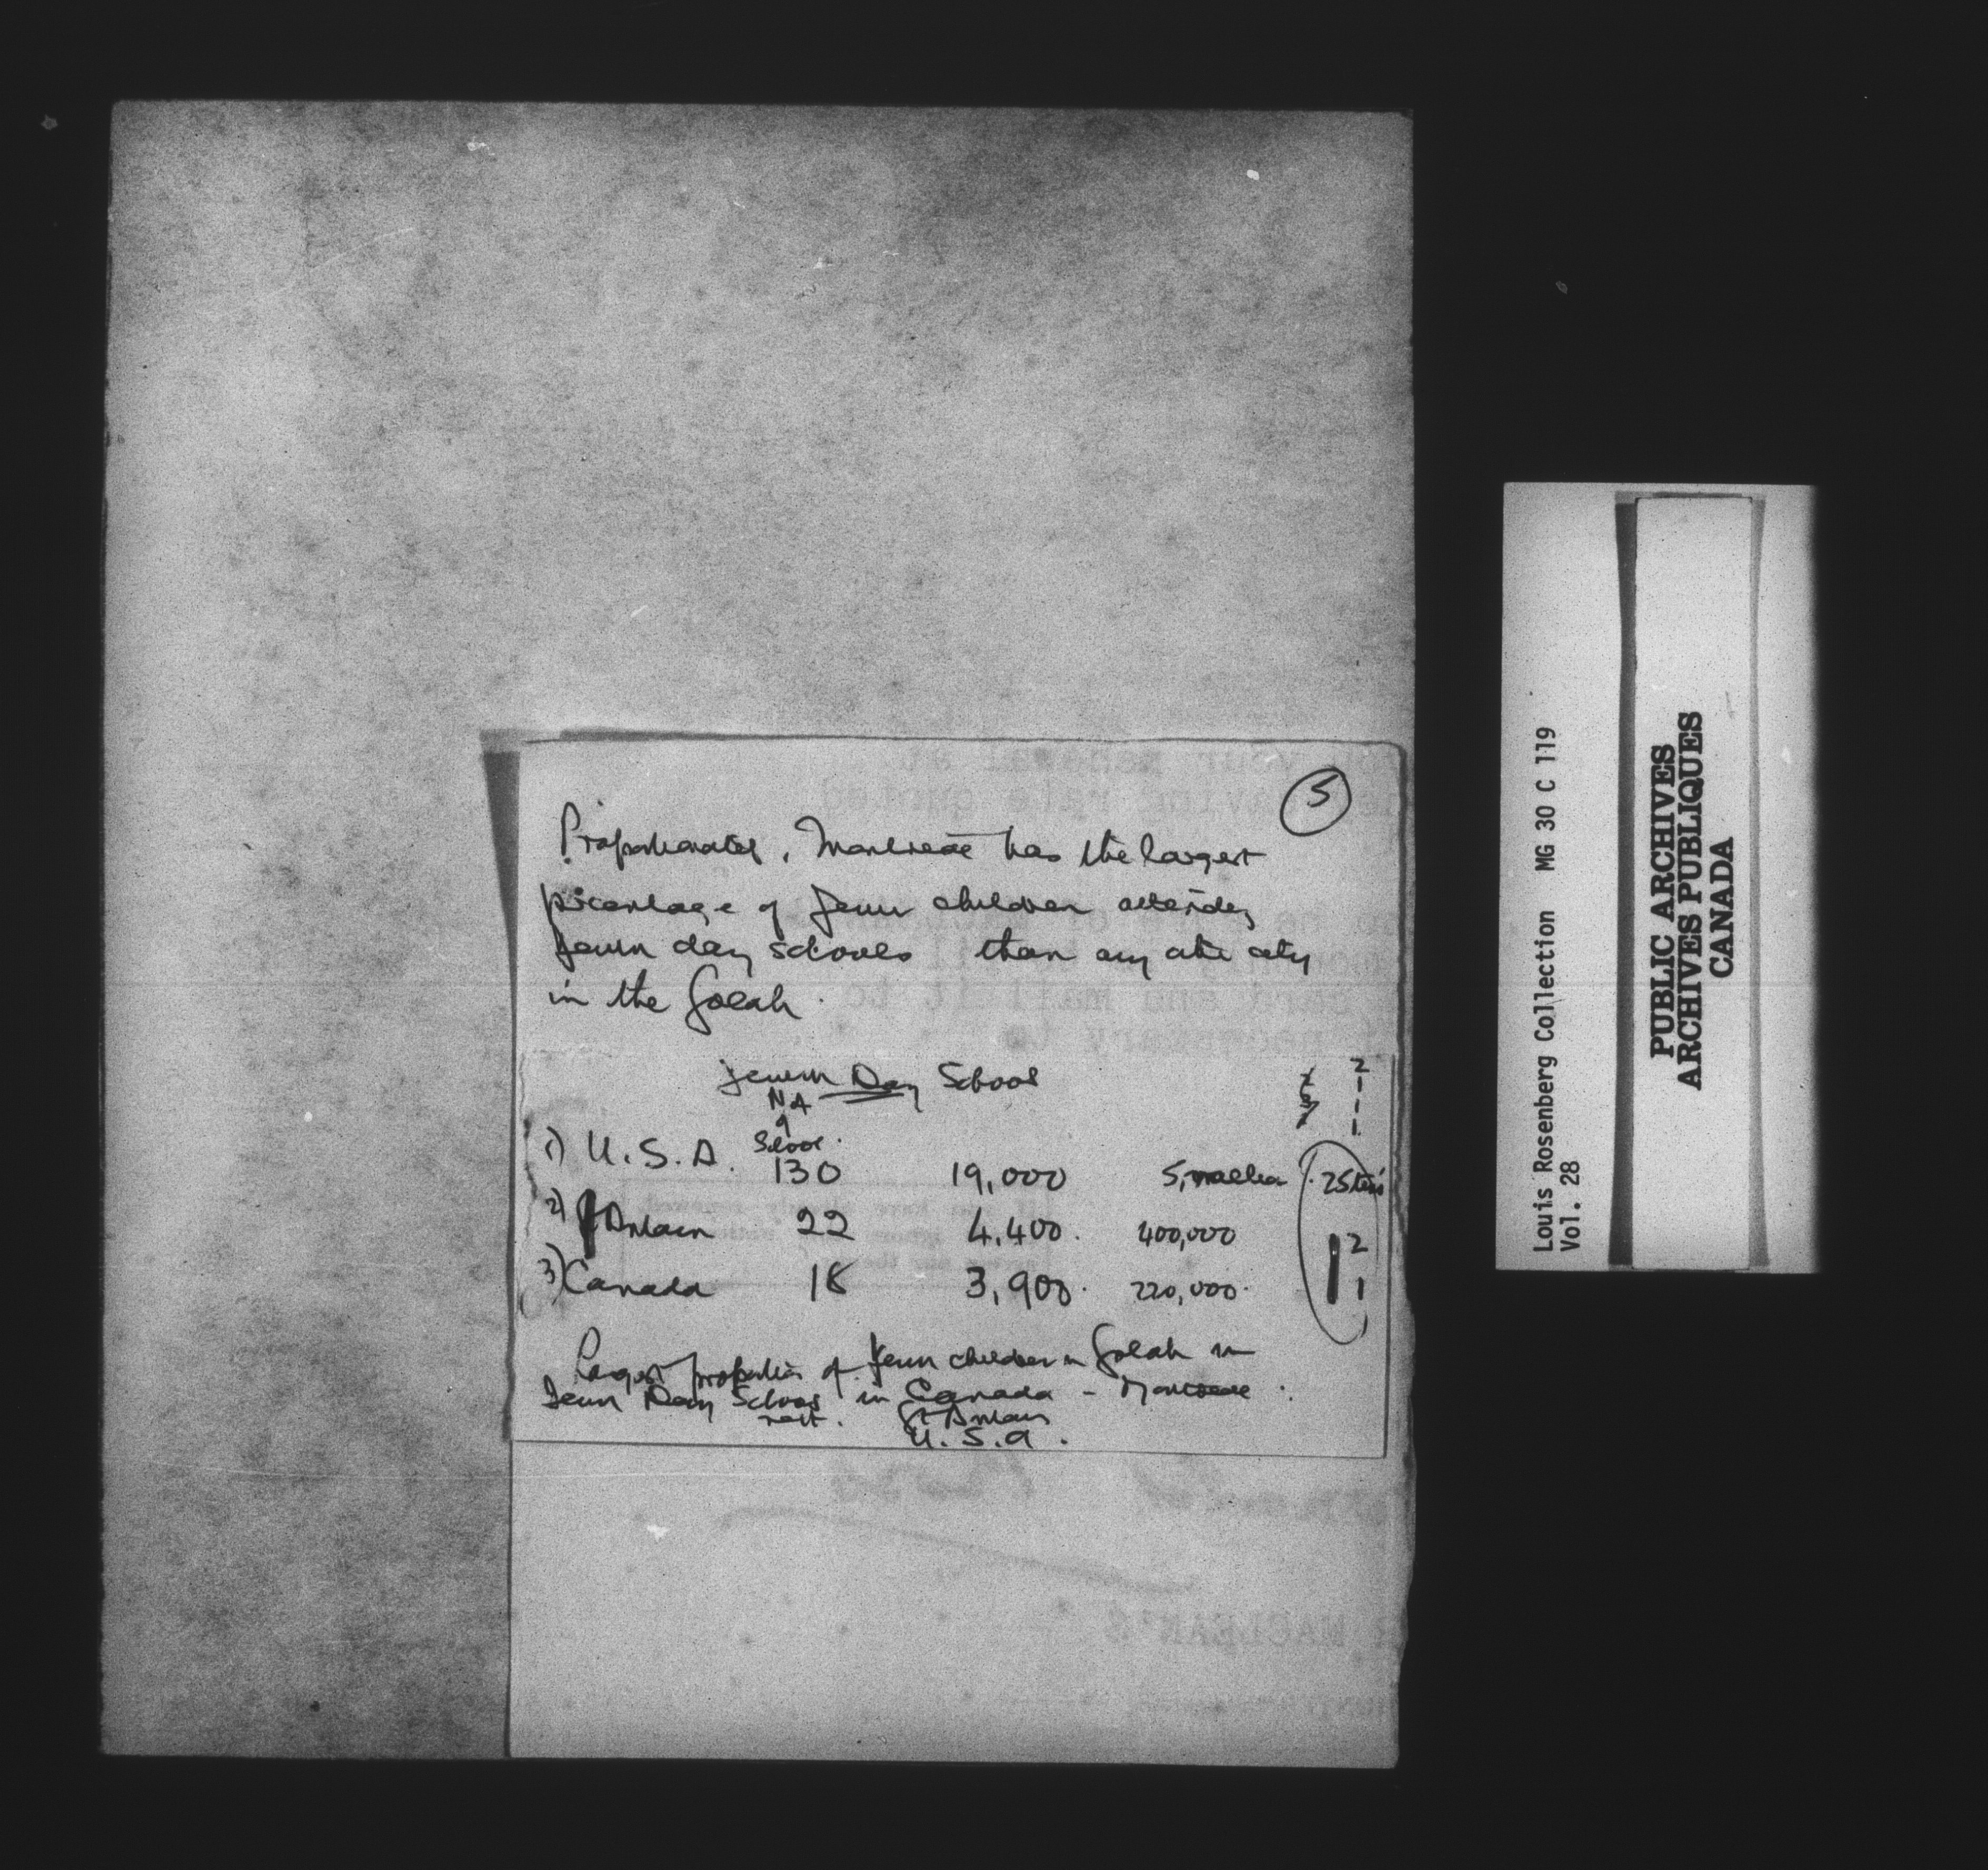 5
Proportionately, Montreal has the largest
percentage of Jewish children attending
Jewish day schools than any other city
in the Golah.
Jewish Day School
No
of
School.
1) U.S.A. 130 19,000 5, million 25 times
2) Gt Britain 22 4,400. 400,000 2
3) Canada 18 3,900. 220,000. 1
Largest proportion of Jewish children in Golah in
Jewish Day Schools in Canada - Montreal.
next. Gt Britain
U.S.A.
Louis Rosenberg Collection MG 30 C 119
Vol. 28
PUBLIC ARCHIVES
ARCHIVES PUBLIQUES
CANADA